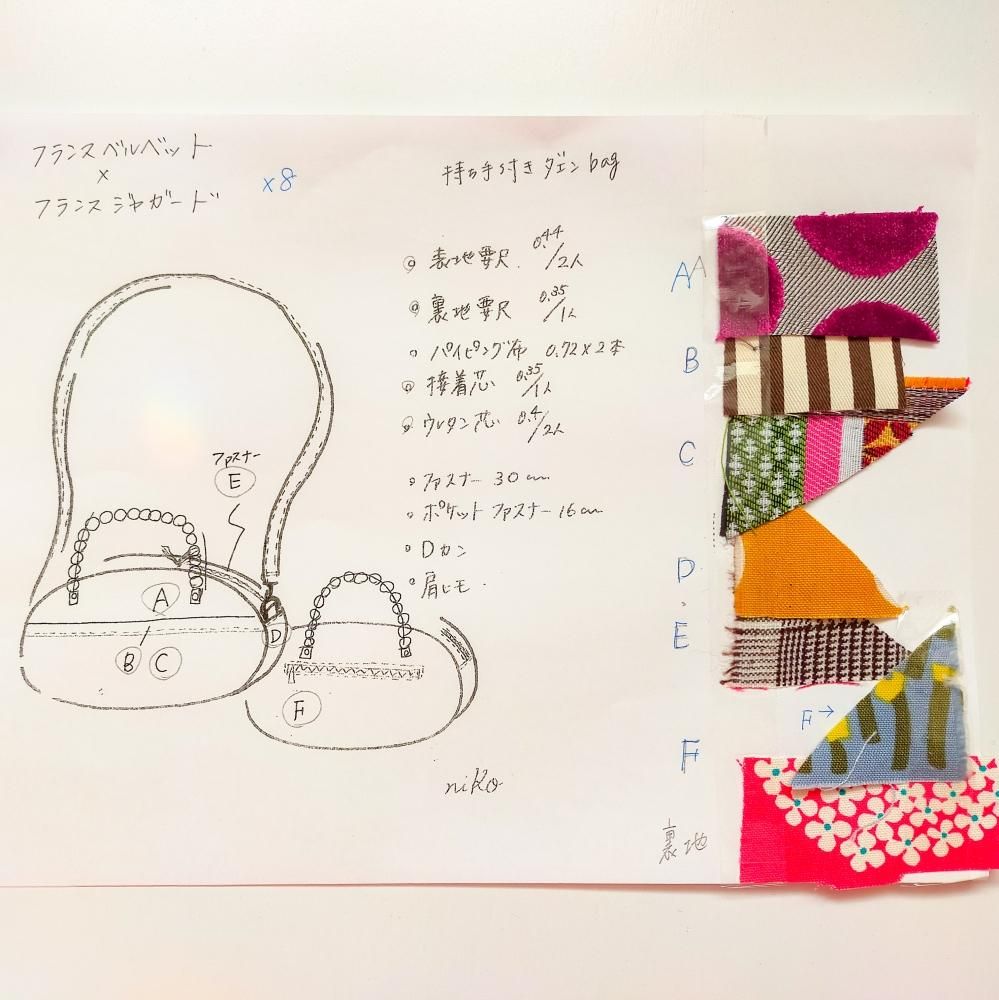 フランスベルベット
×
フランスジャガード
×8
持ち手付きダエンbag
◎ 表地要尺 0.44/2人
◎ 裏地要尺 0.35/1人
○ パイピング布 0.72×2本
◎ 接着芯 0.35/1人
◎ ウレタン芯 0.4/2人
○ ファスナー 30cm
○ ポケットファスナー 16cm
○ Dカン
○ 肩ヒモ
ファスナー
E
A
B C
D
F
niko
A A
B
C
D
E
F→
F
裏地